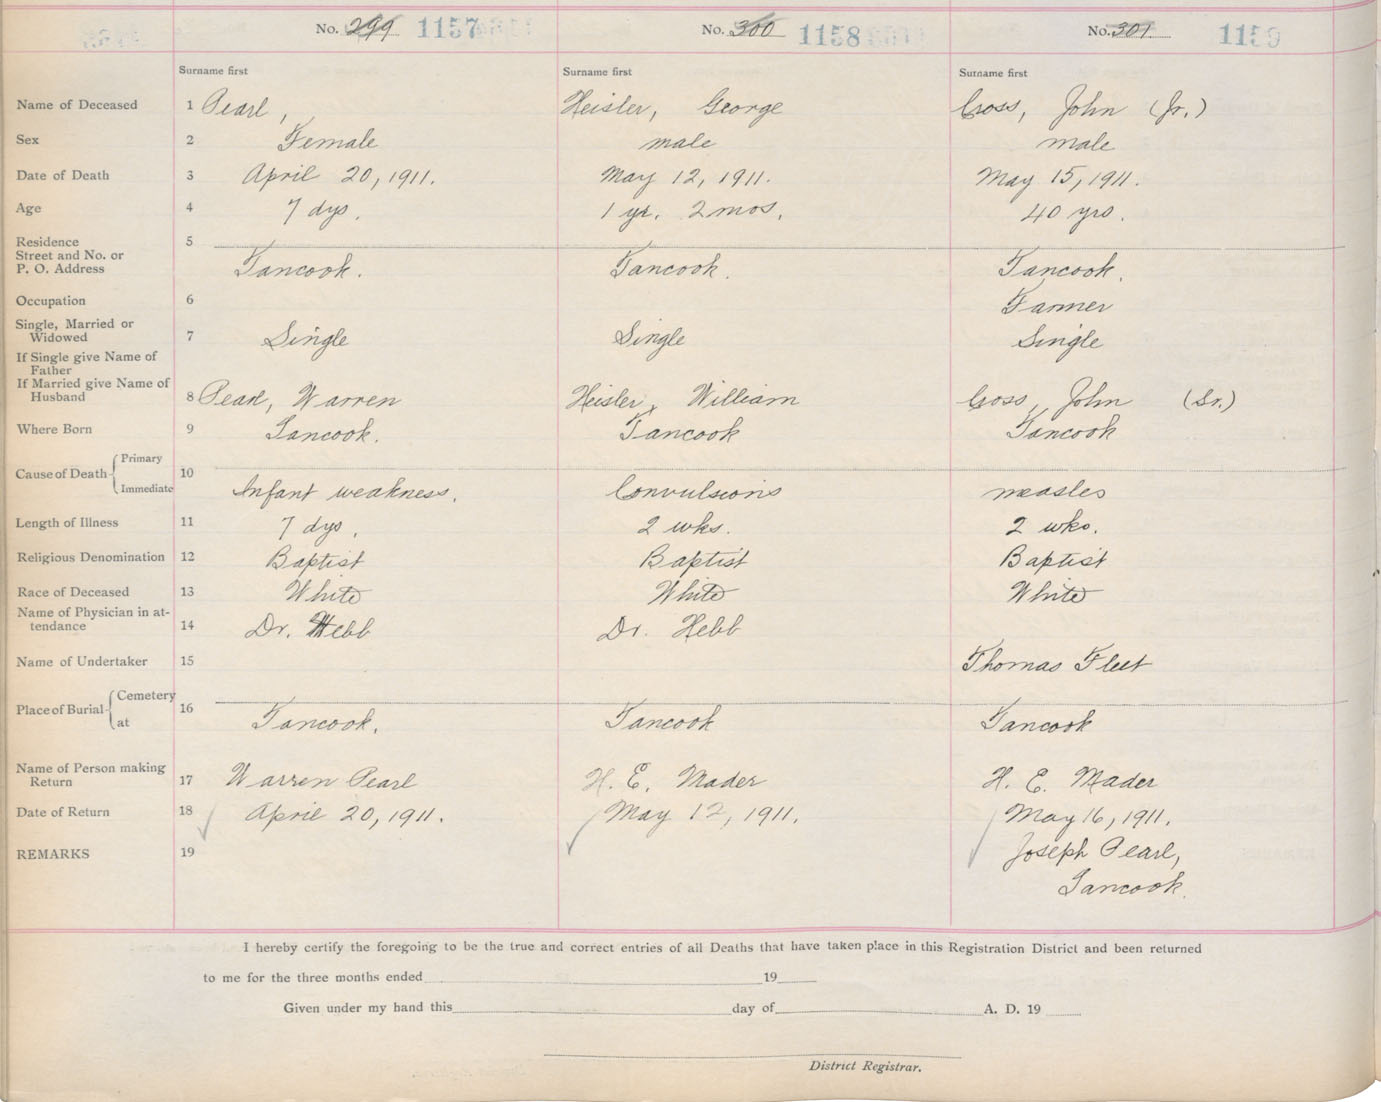 No. 299 1157 No. 300 1158 No. 301 1159
Surname first Surname first Surname first
Name of Deceased 1 Pearl, Heisler, George Cross, John (Jr.)
Sex 2 Female male male
Date of Death 3 April 20, 1911. May 12, 1911. May 15, 1911.
Age 4 7 dys. 1 yr. 2 mos. 40 yrs.
Residence 5
Street and No. or
P. O. Address Tancook. Tancook. Tancook.
Occupation 6 Farmer
Single, Married or
Widowed 7 Single Single Single
If Single give Name of
Father
If Married give Name of
Husband 8 Pearl, Warren Heisler, William Cross, John (Sr.)
Where Born 9 Tancook. Tancook Tancook
Cause of Death { Primary 10
Immediate Infant weakness. Convulsions measles
Length of Illness 11 7 dys. 2 wks. 2 wks.
Religious Denomination 12 Baptist Baptist Baptist
Race of Deceased 13 White White White
Name of Physician in at-
tendance 14 Dr. Hebb Dr. Hebb
Name of Undertaker 15 Thomas Fleet
Place of Burial { Cemetery 16
at Tancook. Tancook Tancook
Name of Person making
Return 17 Warren Pearl H. E. Mader H. E. Mader
Date of Return 18 April 20, 1911. May 12, 1911. May 16, 1911.
REMARKS 19 Joseph Pearl,
Tancook.
I hereby certify the foregoing to be the true and correct entries of all Deaths that have taken place in this Registration District and been returned
to me for the three months ended 19
Given under my hand this day of A. D. 19
District Registrar.